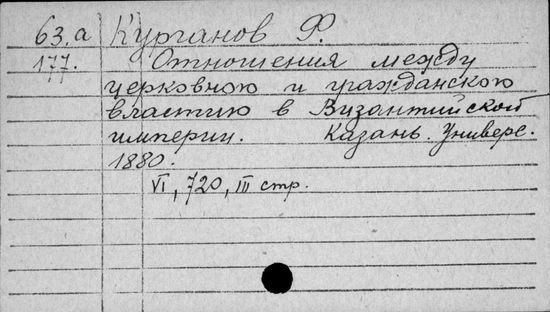 63.а Курганов Ф.
177. Отношения между
церковною и гражданскою
властию в Византийской
империи. Казань. Универс.
1880.
VI, 720, III стр.